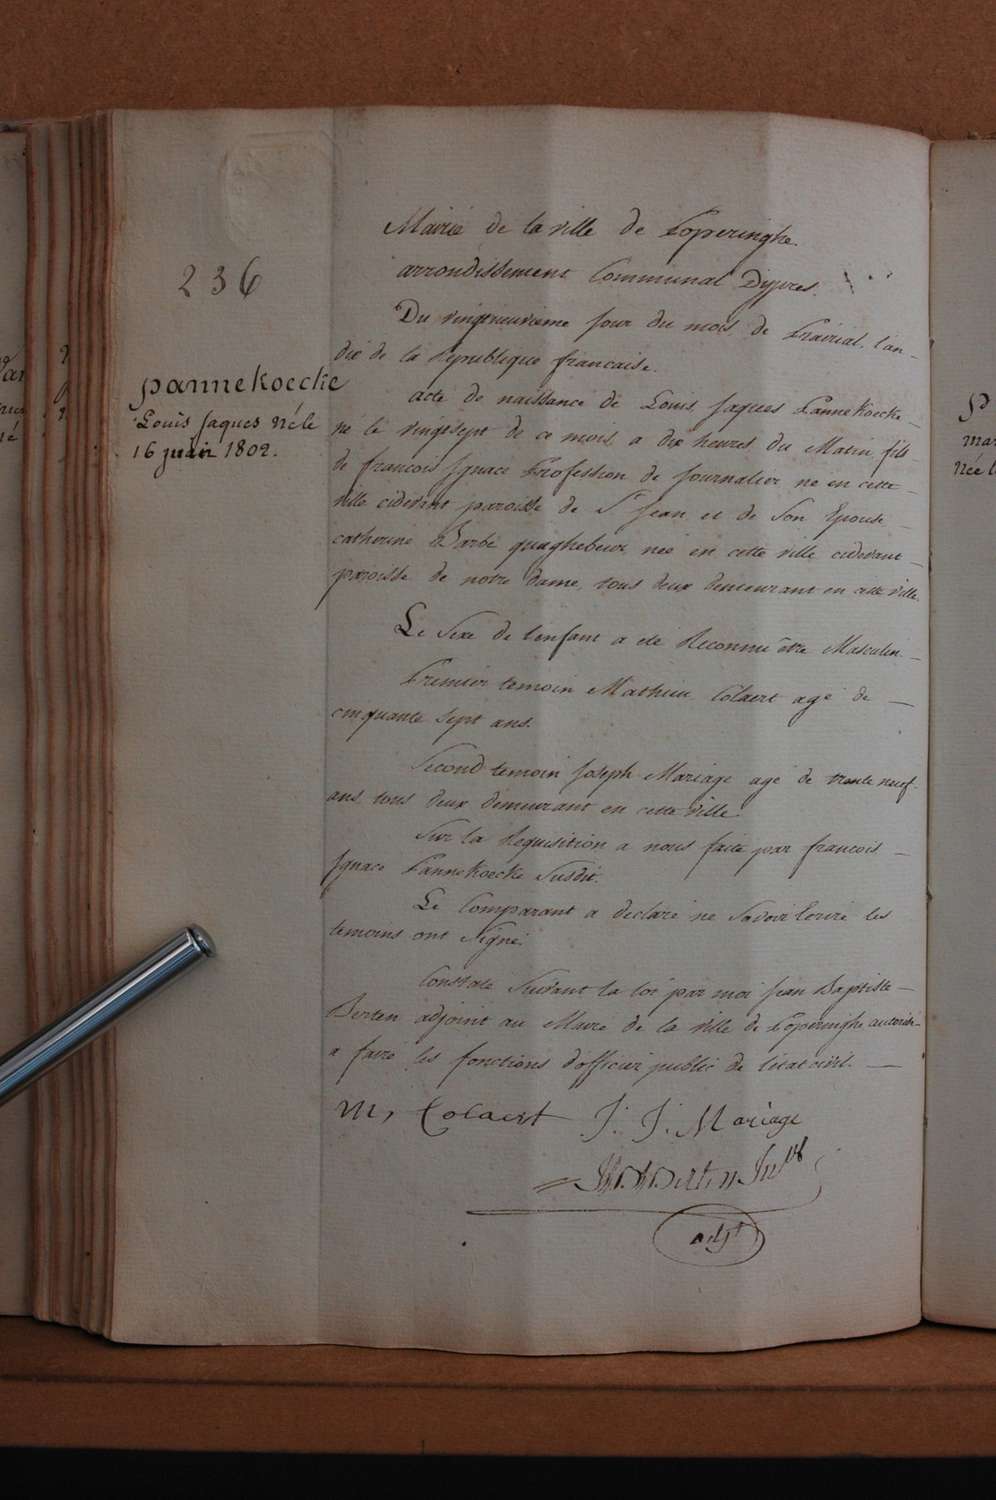 236
pannekoecke
Louis Jaques né le
16 juin 1802.
Mairie de la ville de Poperinghe
arrondissement Communal Dypres
Du vingtneuvieme jour du mois de Prairial, l'an
dix de la Republique francaise.
acte de naissance de Louis Jaques Pannekoecke
né le vingtsept de ce mois a dix heures du Matin fils
de francois Ignace Profession de Journalier né en cette
ville cidevant paroisse de St Jean et de Son Epouse
catherine Barbe quaghebeur née en cette ville cidevant
paroisse de notre dame, tous deux demeurant en cette ville.
Le Sexe de l'enfant a eté Reconnu être Masculin.
Premier temoin Mathieu Colaert agé de
cinquante sept ans.
Second temoin Joseph Mariage agé de trente neuf
ans tous deux demeurant en cette Ville.
Sur la Requisition a nous faite par francois
Ignace Pannekoecke Susdit.
Le Comparant a declaré ne Savoir Ecrire les
temoins ont Signé.
Constaté Suivant la loi par moi Jean Baptiste
Berten adjoint au Maire de la ville de Poperinghe autorisé
a faire les fonctions d'officier public de l'état civil.
M, Colaert J. J. Mariage
Berten
adjt